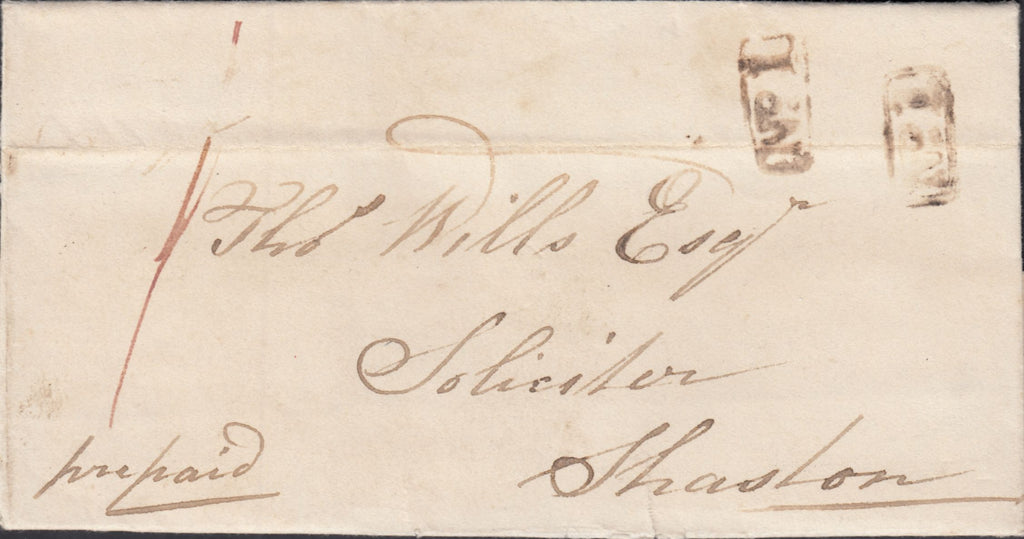 No. 1
No. 1
Thos Wills Esqr
Soliciter
Shaston
prepaid